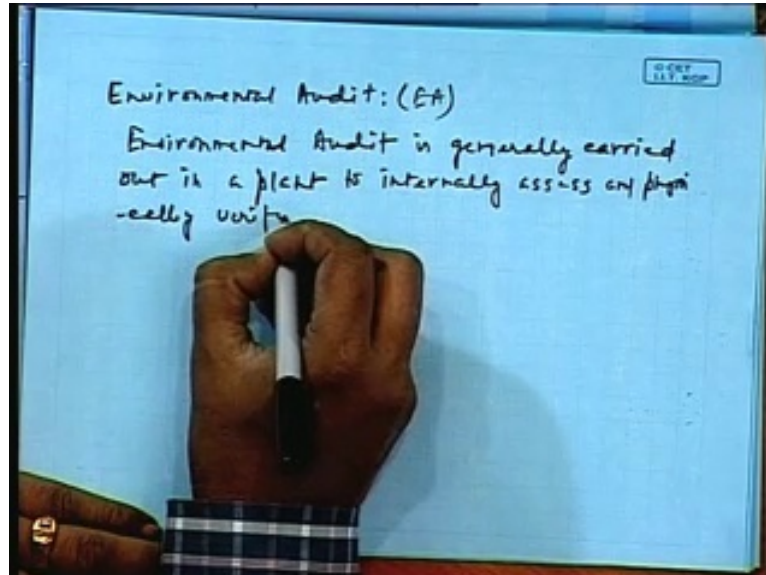 © CET
I.I.T. KGP
Environmental Audit: (EA)
Environmental Audit is generally carried
out in a plant to internally assess and physi
-cally verify